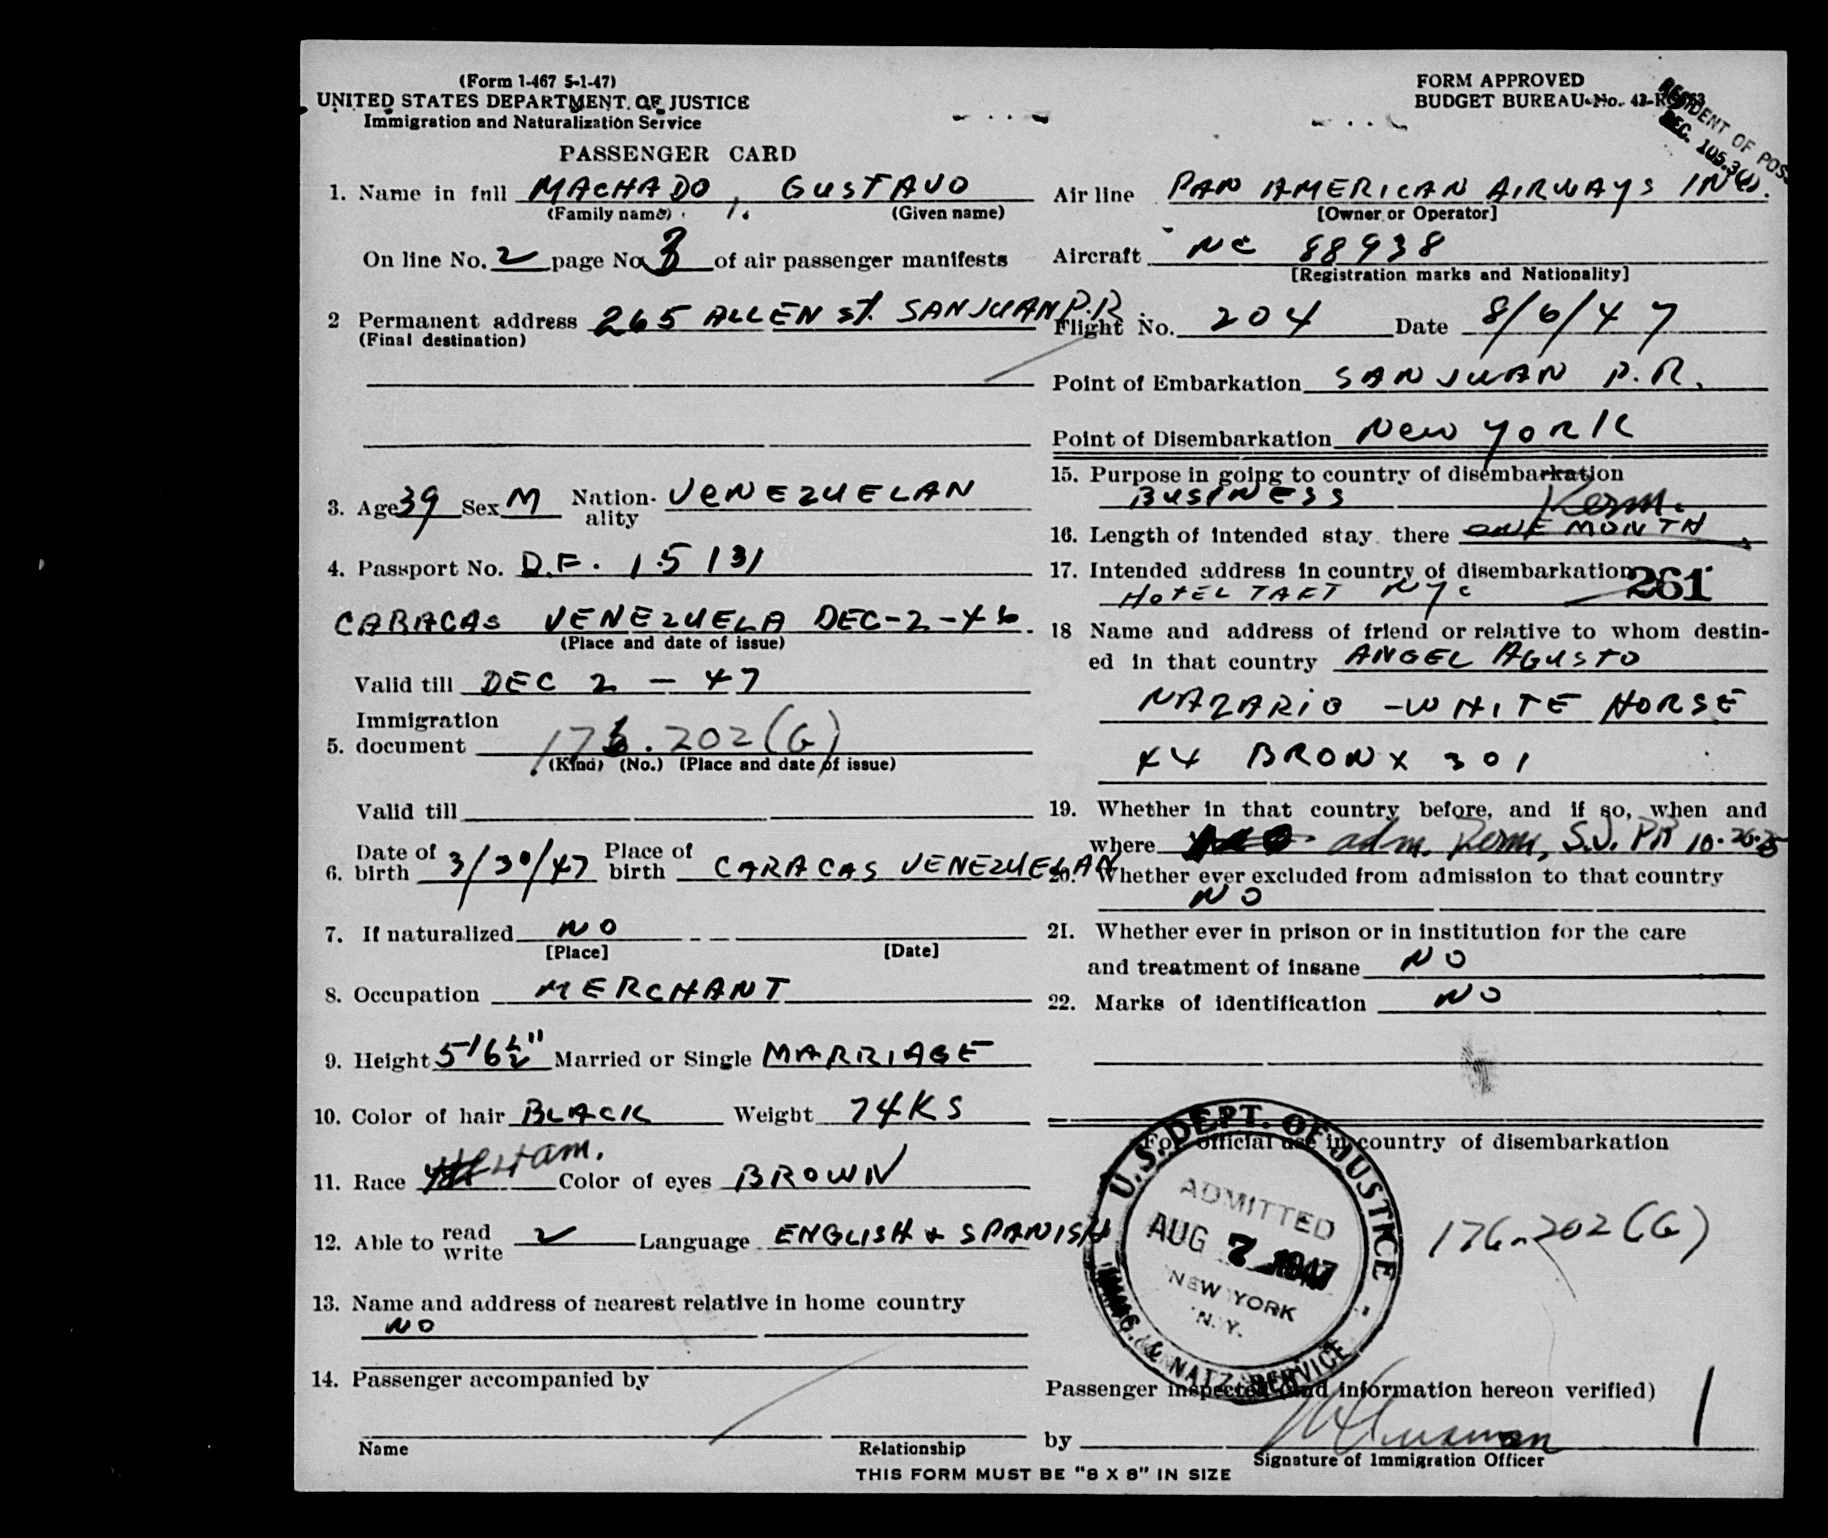 (Form I-467 5-1-47)
UNITED STATES DEPARTMENT OF JUSTICE
Immigration and Naturalization Service
PASSENGER CARD
1. Name in full MACHADO, GUSTAVO
(Family name) (Given name)
On line No. 2 page No. 3 of air passenger manifests
2 Permanent address 265 ALLEN St. SAN JUAN P.R.
(Final destination)
3. Age 39 Sex M Nation-ality VENEZUELAN
4. Passport No. D.F. 15131
CARACAS VENEZUELA DEC-2-46
(Place and date of issue)
Valid till DEC 2 - 47
5. Immigration document 176.202(G)
(Kind) (No.) (Place and date of issue)
Valid till
6. Date of birth 3/30/47 Place of birth CARACAS VENEZUELAN
7. If naturalized NO
[Place] [Date]
8. Occupation MERCHANT
9. Height 5'6½" Married or Single MARRIAGE
10. Color of hair BLACK Weight 74KS
11. Race Color of eyes BROWN
12. Able to read write ✓ Language ENGLISH & SPANISH
13. Name and address of nearest relative in home country
NO
14. Passenger accompanied by
Name Relationship
FORM APPROVED
BUDGET BUREAU No.
RESIDENT OF
SEC. 105.3
Air line PAN AMERICAN AIRWAYS INC.
[Owner or Operator]
Aircraft NC 88938
[Registration marks and Nationality]
Flight No. 204 Date 8/6/47
Point of Embarkation SAN JUAN P.R.
Point of Disembarkation New YORK
15. Purpose in going to country of disembarkation
BUSINESS Perm.
16. Length of intended stay there ONE MONTH
17. Intended address in country of disembarkation 261
HOTEL TAFT NYC
18 Name and address of friend or relative to whom destin-
ed in that country ANGEL AGUSTO
NAZARIO - WHITE HORSE
44 BRONX 301
19. Whether in that country before, and if so, when and
where adm. Perm, S.J. PR 10-26-25
20. Whether ever excluded from admission to that country
NO
21. Whether ever in prison or in institution for the care
and treatment of insane NO
22. Marks of identification NO
For official use in country of disembarkation
U.S. DEPT. OF JUSTICE
ADMITTED
AUG 7 1947
NEW YORK
N.Y.
IMMIG. & NATZ. SERVICE
176.202(G)
Passenger inspected (and information hereon verified)
by
Signature of Immigration Officer
THIS FORM MUST BE "8 X 8" IN SIZE